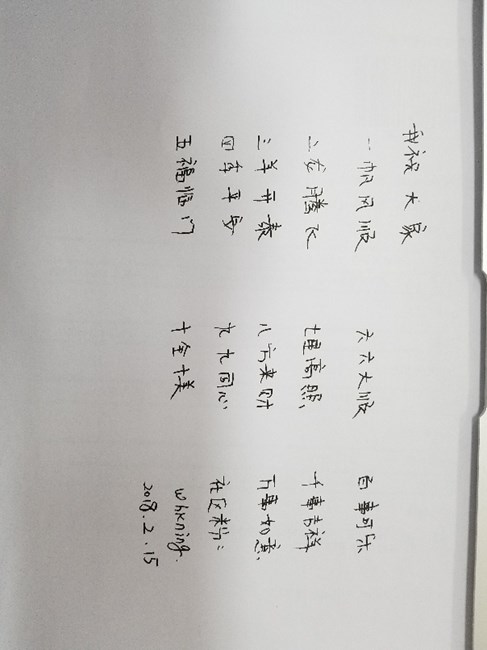 我祝大家
一帆风顺 六六大顺 百事可乐
二龙腾飞 七星高照, 千事吉祥
三羊开泰 八方来财 万事如意,
四季平安 九九同心 社区粉:
五福临门 十全十美 whxning.
2018.2.15